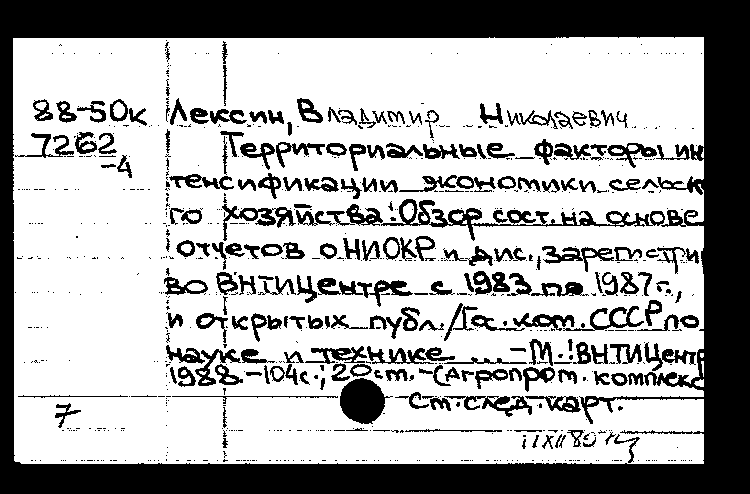 88-50к Лексин, Владимир Николаевич
7262 Территориальные факторы ин
-4
тенсификации экономики сельск
го хозяйства: Обзор сост. на основе
отчетов о НИОКР и дис., зарегистри
во ВНТИЦентре с 1983 по 1987г.,
и открытых публ. / Гос. ком. СССР по
науке и технике ... - М.: ВНТИЦентр
1988. - 104с.; 20см. - (Агропром. комплекс
7 См. след. карт.